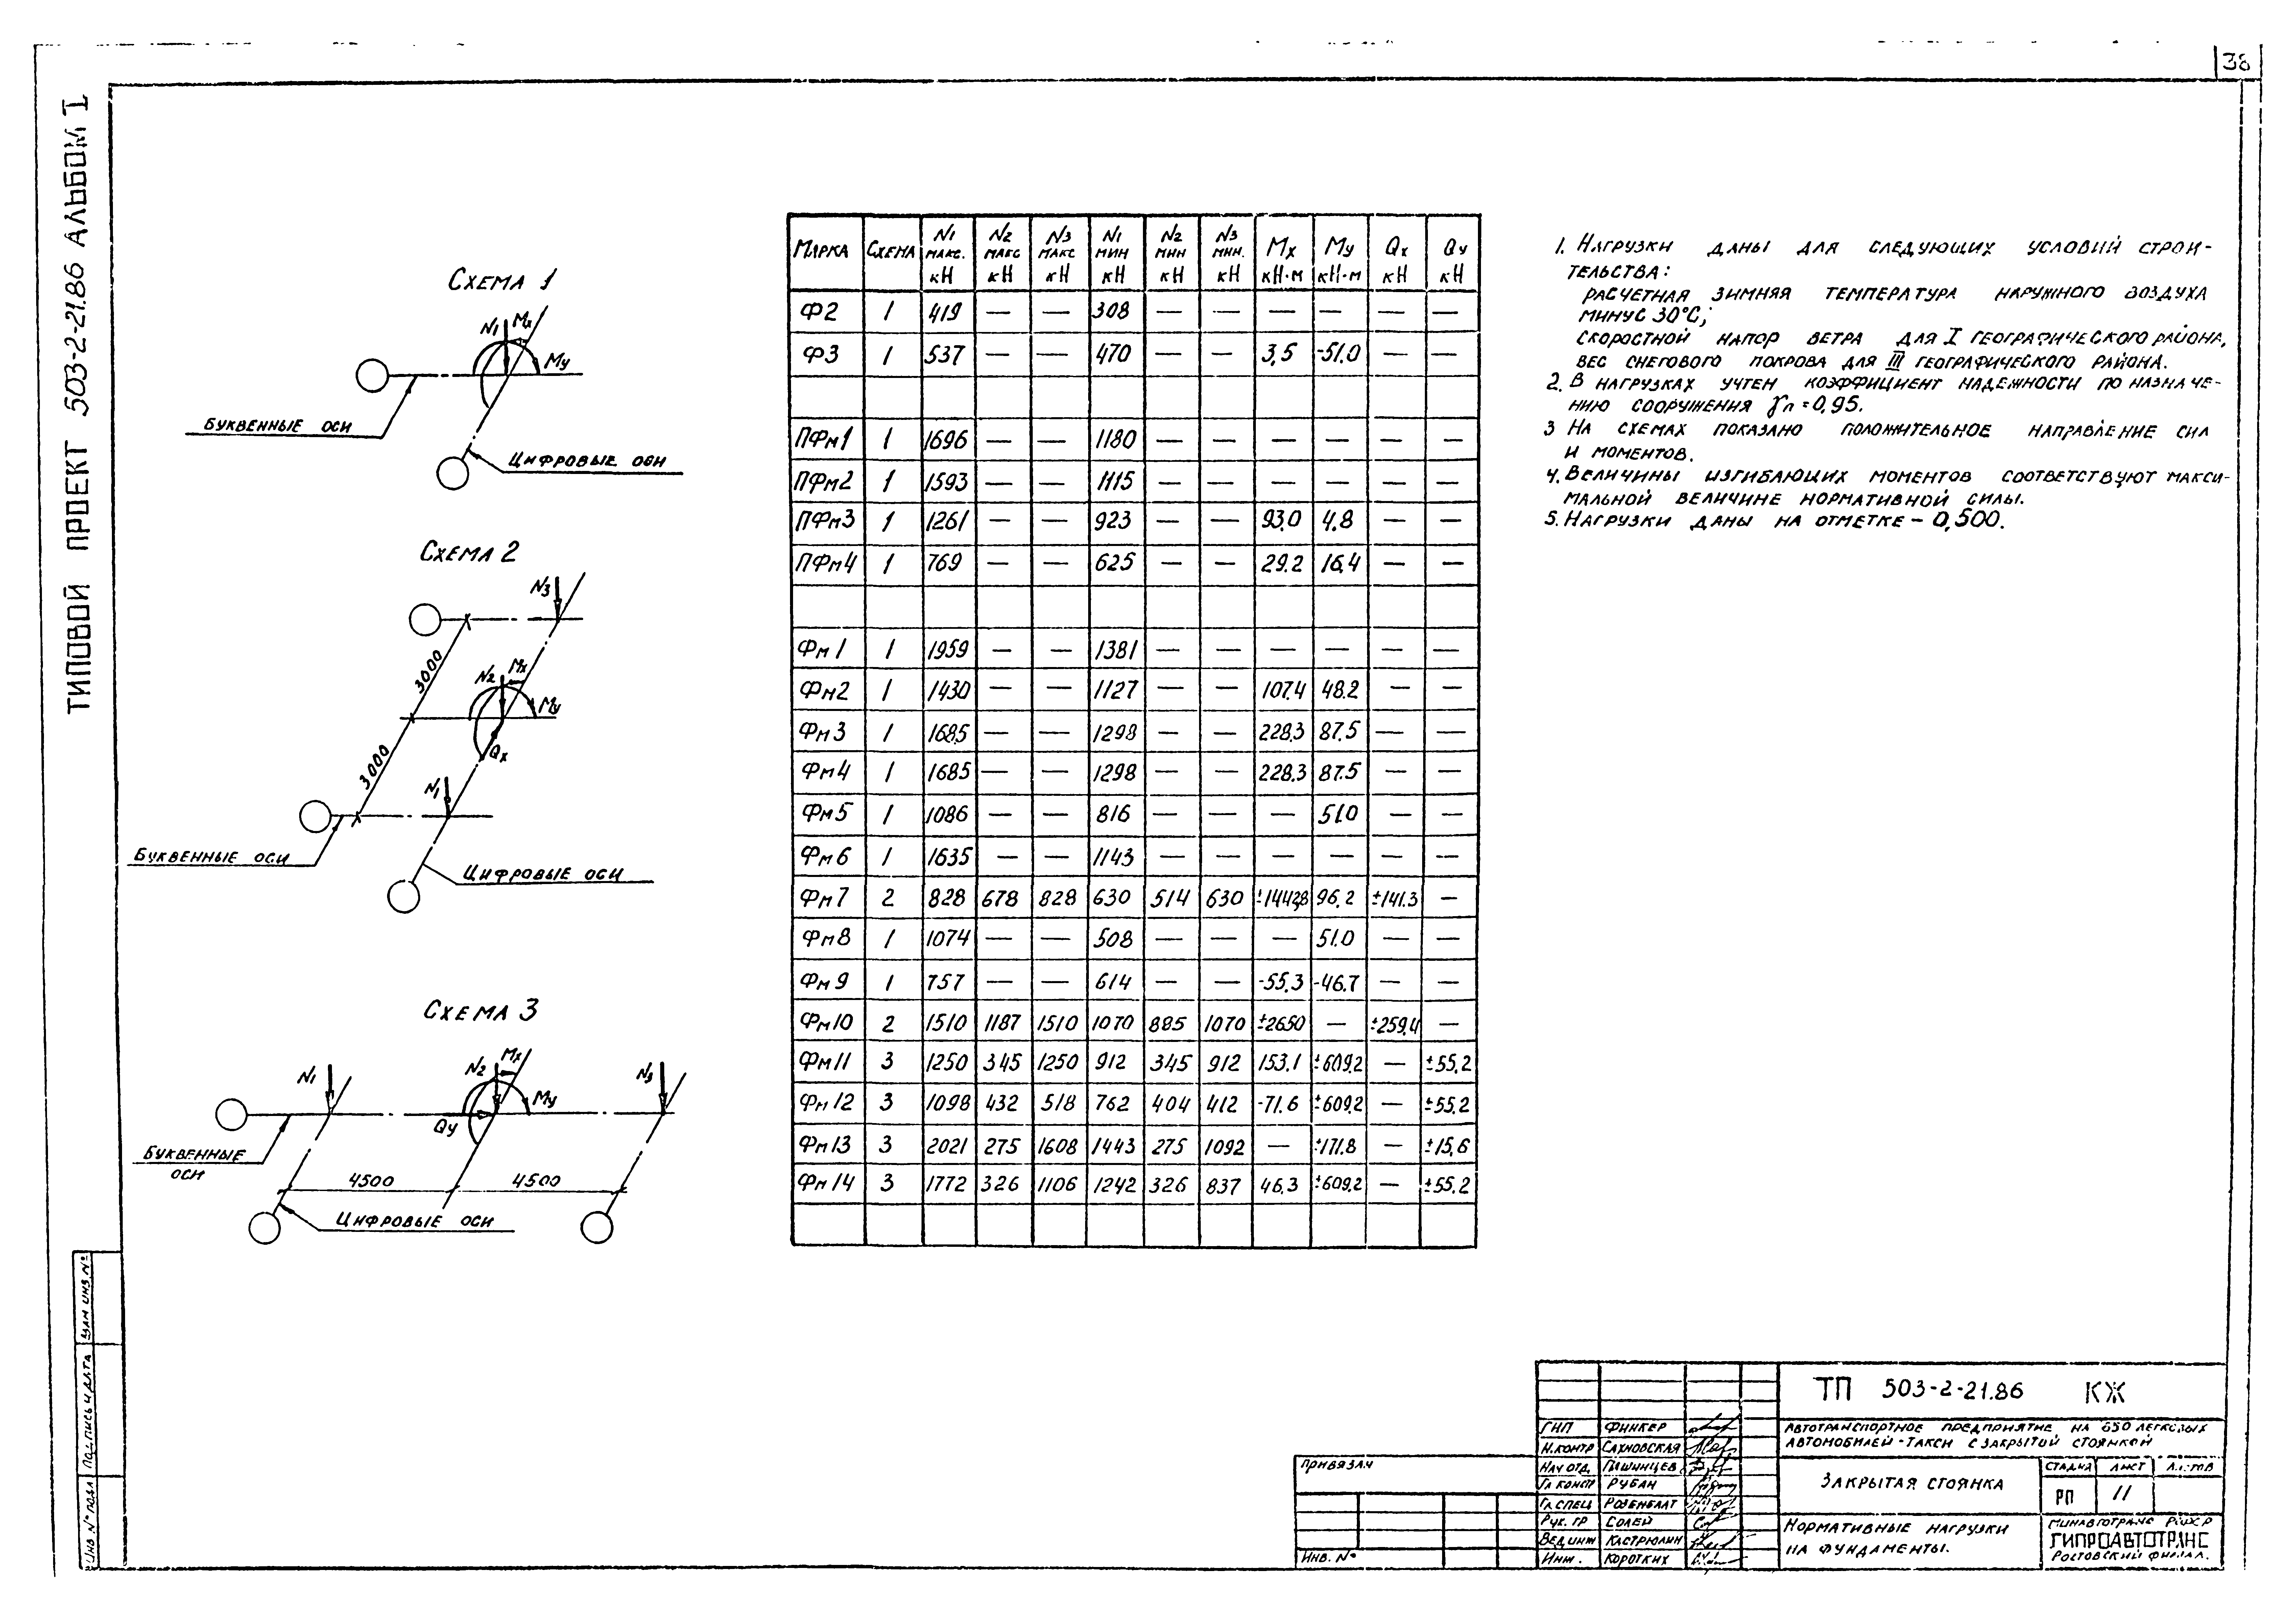 38
ТИПОВОЙ ПРОЕКТ 503-2-21.86 АЛЬБОМ I
СХЕМА 1
N1 Mx
My
БУКВЕННЫЕ ОСИ
ЦИФРОВЫЕ ОСИ
СХЕМА 2
N3
3000
N2 Mx
My
Qx
3000
N1
БУКВЕННЫЕ ОСИ
ЦИФРОВЫЕ ОСИ
СХЕМА 3
N1 N2 Mx N3
My
Qy
БУКВЕННЫЕ
ОСИ
4500 4500
ЦИФРОВЫЕ ОСИ
МАРКА СХЕМА N1 МАКС. кН N2 МАКС кН N3 МАКС кН N1 МИН кН N2 МИН кН N3 МИН. кН Mx кН·м My кН·м Qx кН Qy кН
Ф2 1 419 — — 308 — — — — — —
Ф3 1 537 — — 470 — — 3,5 -51.0 — —
ПФм1 1 1696 — — 1180 — — — — — —
ПФм2 1 1593 — — 1115 — — — — — —
ПФм3 1 1261 — — 923 — — 93.0 4.8 — —
ПФм4 1 769 — — 625 — — 29.2 16.4 — —
Фм1 1 1959 — — 1381 — — — — — —
Фм2 1 1430 — — 1127 — — 107.4 48.2 — —
Фм3 1 1685 — — 1298 — — 228.3 87.5 — —
Фм4 1 1685 — — 1298 — — 228.3 87.5 — —
Фм5 1 1086 — — 816 — — — 51.0 — —
Фм6 1 1635 — — 1143 — — — — — —
Фм7 2 828 678 828 630 514 630 ±1442,8 96.2 ±141.3 —
Фм8 1 1074 — — 508 — — — 51.0 — —
Фм9 1 757 — — 614 — — -55.3 -46.7 — —
Фм10 2 1510 1187 1510 1070 885 1070 ±2650 — ±259.4 —
Фм11 3 1250 345 1250 912 345 912 153.1 ±609.2 — ±55.2
Фм12 3 1098 432 518 762 404 412 -71.6 ±609.2 — ±55.2
Фм13 3 2021 275 1608 1443 275 1092 — ±171.8 — ±15.6
Фм14 3 1772 326 1106 1242 326 837 46.3 ±609.2 — ±55.2
1. НАГРУЗКИ ДАНЫ ДЛЯ СЛЕДУЮЩИХ УСЛОВИЙ СТРОИ-
ТЕЛЬСТВА:
РАСЧЕТНАЯ ЗИМНЯЯ ТЕМПЕРАТУРА НАРУЖНОГО ВОЗДУХА
МИНУС 30°С;
СКОРОСТНОЙ НАПОР ВЕТРА ДЛЯ I ГЕОГРАФИЧЕСКОГО РАЙОНА,
ВЕС СНЕГОВОГО ПОКРОВА ДЛЯ III ГЕОГРАФИЧЕСКОГО РАЙОНА.
2. В НАГРУЗКАХ УЧТЕН КОЭФФИЦИЕНТ НАДЕЖНОСТИ ПО НАЗНАЧЕ-
НИЮ СООРУЖЕНИЯ γп=0,95.
3 НА СХЕМАХ ПОКАЗАНО ПОЛОЖИТЕЛЬНОЕ НАПРАВЛЕНИЕ СИЛ
И МОМЕНТОВ.
4. ВЕЛИЧИНЫ ИЗГИБАЮЩИХ МОМЕНТОВ СООТВЕТСТВУЮТ МАКСИ-
МАЛЬНОЙ ВЕЛИЧИНЕ НОРМАТИВНОЙ СИЛЫ.
5. НАГРУЗКИ ДАНЫ НА ОТМЕТКЕ - 0,500.
ИНВ № ПОДЛ ПОДПИСЬ И ДАТА ВЗАМ ИНВ.№
ПРИВЯЗАН
ИНВ. №
ГИП ФИНКЕР
Н.КОНТР САХНОВСКАЯ
НАЧ ОТД. ПАШИНЦЕВ
ГЛ КОНСТР РУБАН
ГЛ.СПЕЦ РОЗЕНБЛАТ
РУК. ГР СОЛЕЙ
ВЕД.ИНЖ КАСТРЮЛИН
ИНЖ. КОРОТКИХ
ТП 503-2-21.86 КЖ
АВТОТРАНСПОРТНОЕ ПРЕДПРИЯТИЕ НА 650 ЛЕГКОВЫХ
АВТОМОБИЛЕЙ-ТАКСИ С ЗАКРЫТОЙ СТОЯНКОЙ
ЗАКРЫТАЯ СТОЯНКА
СТАДИЯ ЛИСТ ЛИСТОВ
РП 11
НОРМАТИВНЫЕ НАГРУЗКИ
НА ФУНДАМЕНТЫ.
МИНАВТОТРАНС РСФСР
ГИПРОАВТОТРАНС
РОСТОВСКИЙ ФИЛИАЛ.